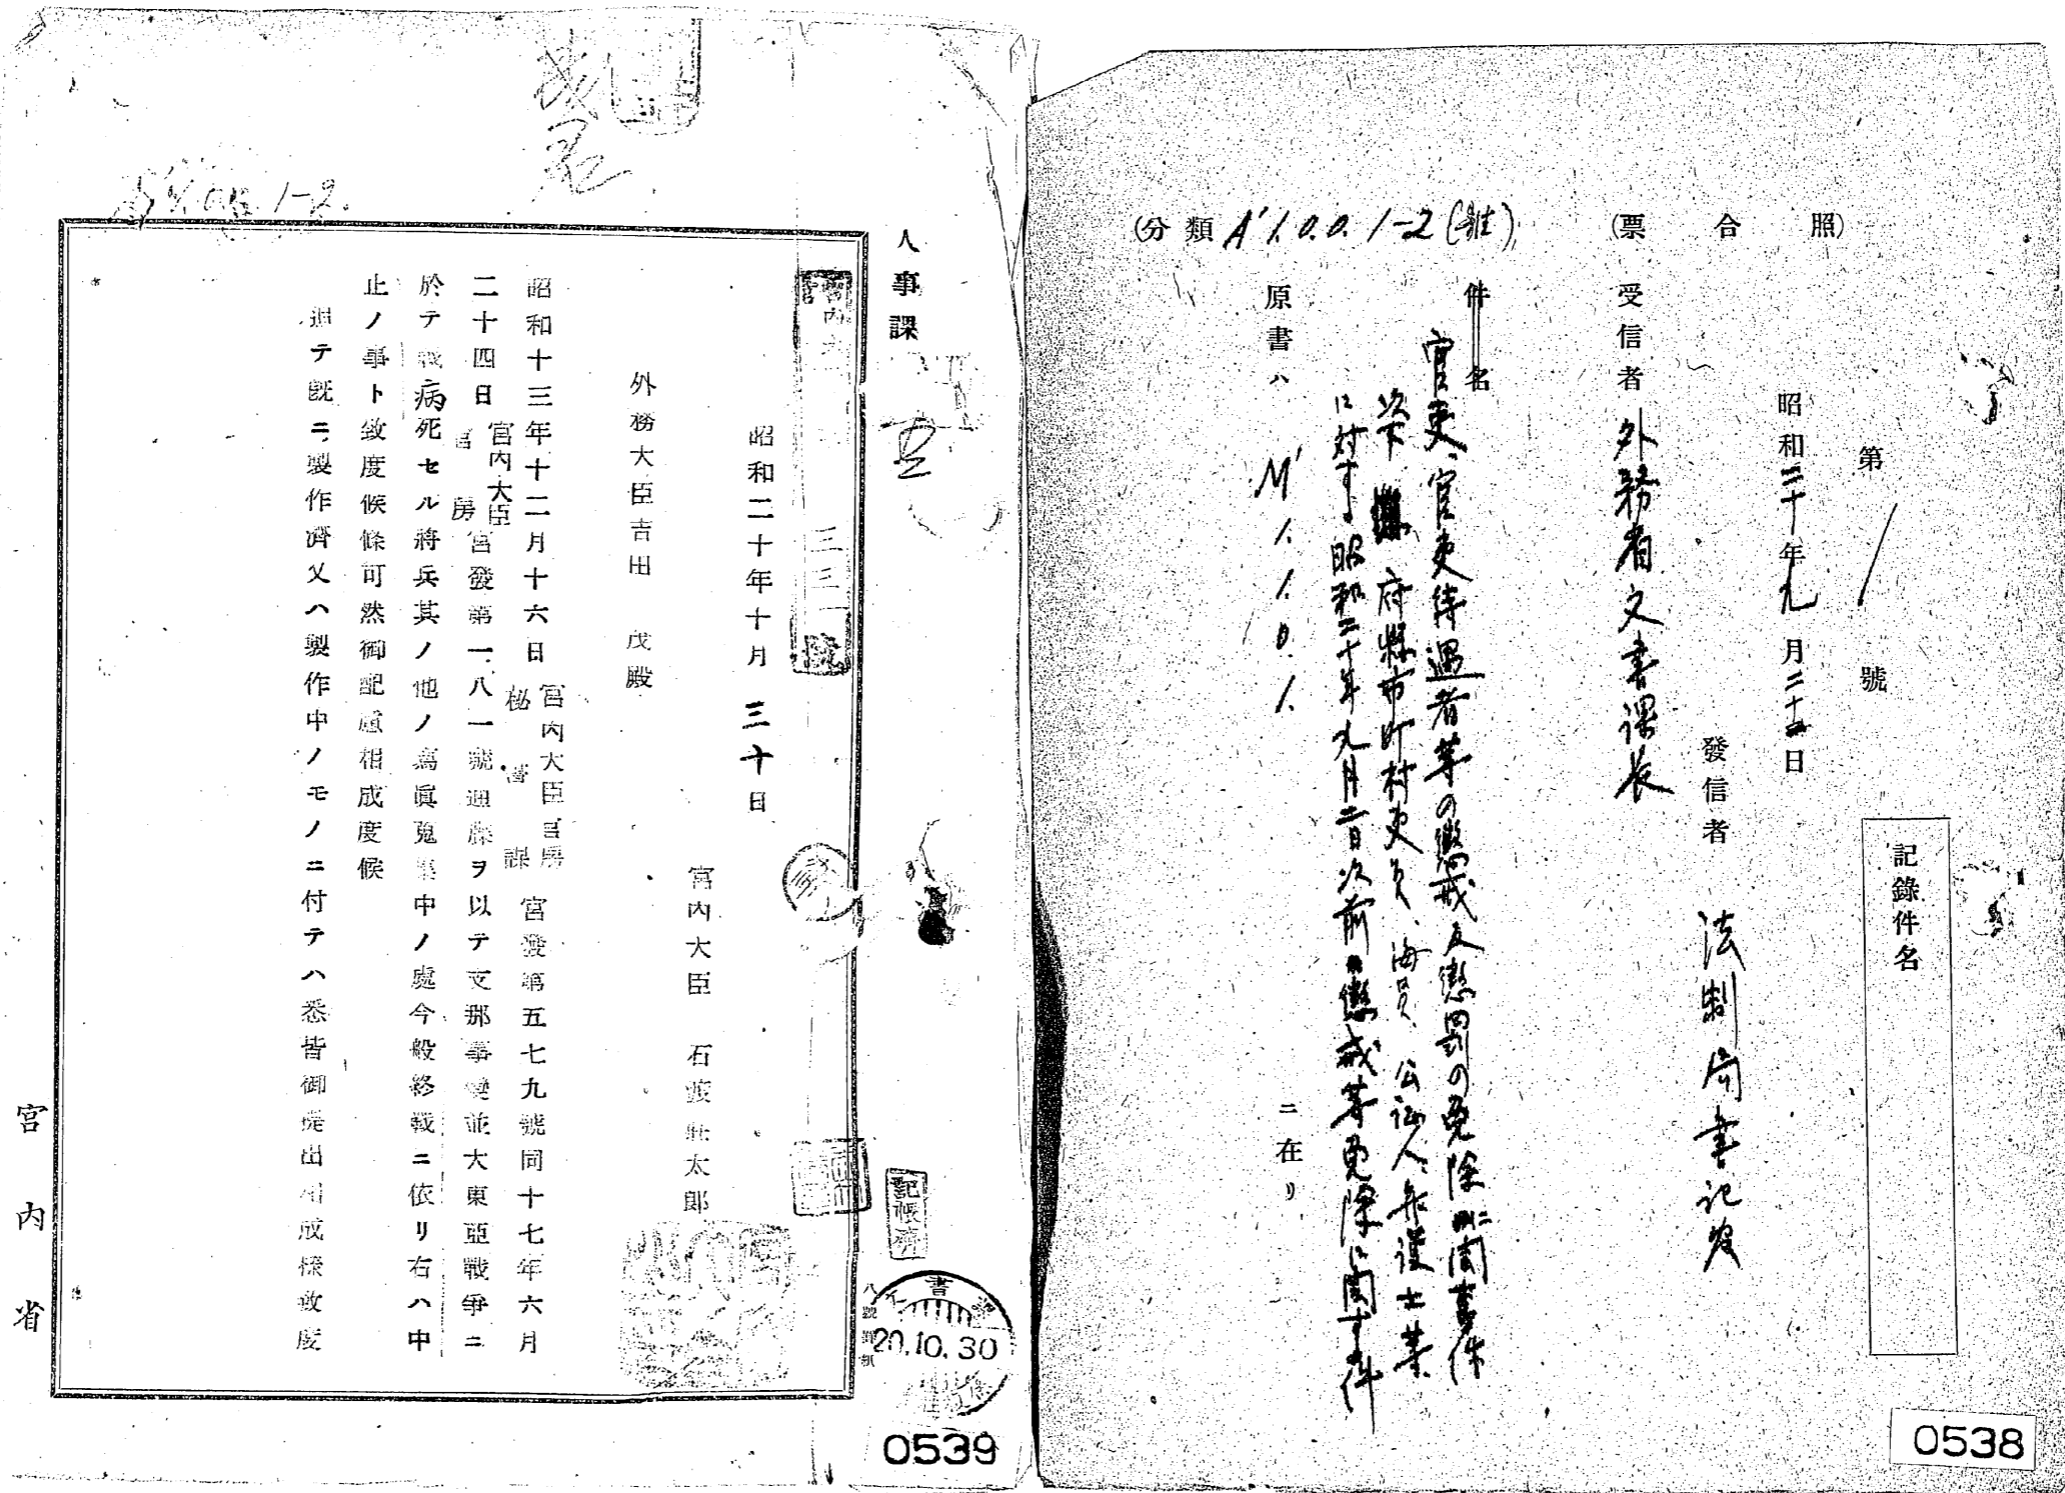 (照合票)
第 號
記錄件名
昭和二十年九月二十 日
發信者 法制局書記官
受信者 外務省文書課長
件名
官吏、官吏待遇者等の懲戒又懲罰の免除ニ関する件
次下 府縣市町村吏員、海員、公証人、弁護士等
に対する昭和二十年九月二日以前の懲戒等免除に関する件
原書ハ M' 1. 1. 0. 1. ニ在リ
(分類 A' 1. 0. 0. 1-2 (雜))
0538
人事課
記帳濟
20.10.30
三三一號
昭和二十年十月三十日
宮內大臣 石渡莊太郎
外務大臣吉田 茂殿
昭和十三年十二月十六日宮內大臣官房秘書課宮發第五七九號同十七年六月
二十四日宮內大臣官房宮發第一八一號通牒ヲ以テ支那事變並大東亞戰爭ニ
於テ戰病死セル將兵其ノ他ノ寫眞蒐集中ノ處今般終戰ニ依リ右ハ中
止ノ事ト致度候條可然御配慮相成度候
追テ旣ニ製作濟又ハ製作中ノモノニ付テハ悉皆御提出相成樣致度
宮內省
0539